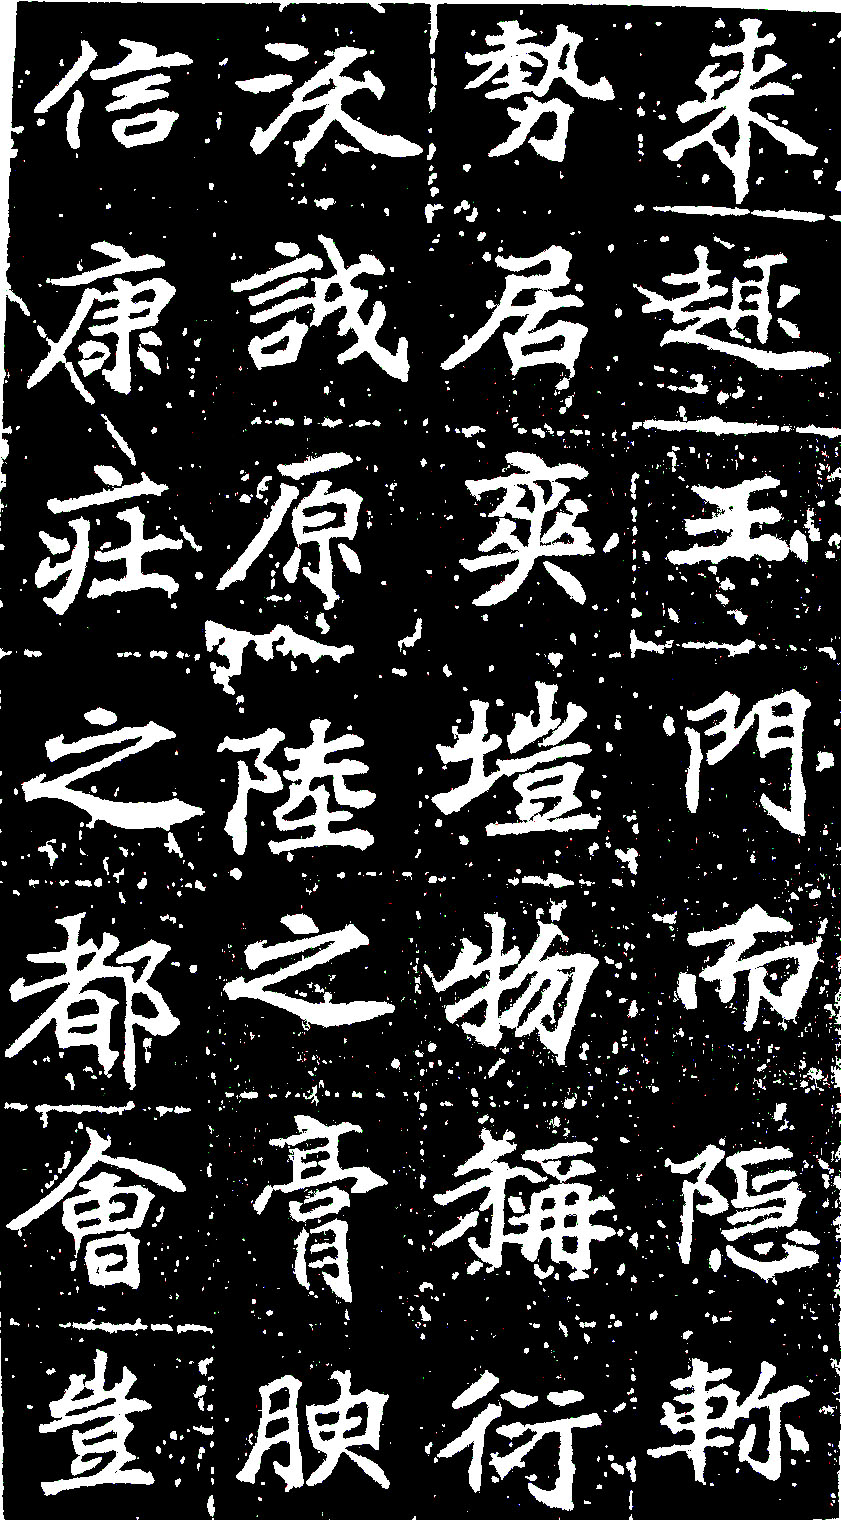 来趣王門而隐軫
勢居爽塏物稱衍
沃誠原陸之膏腴
信康莊之都會豈